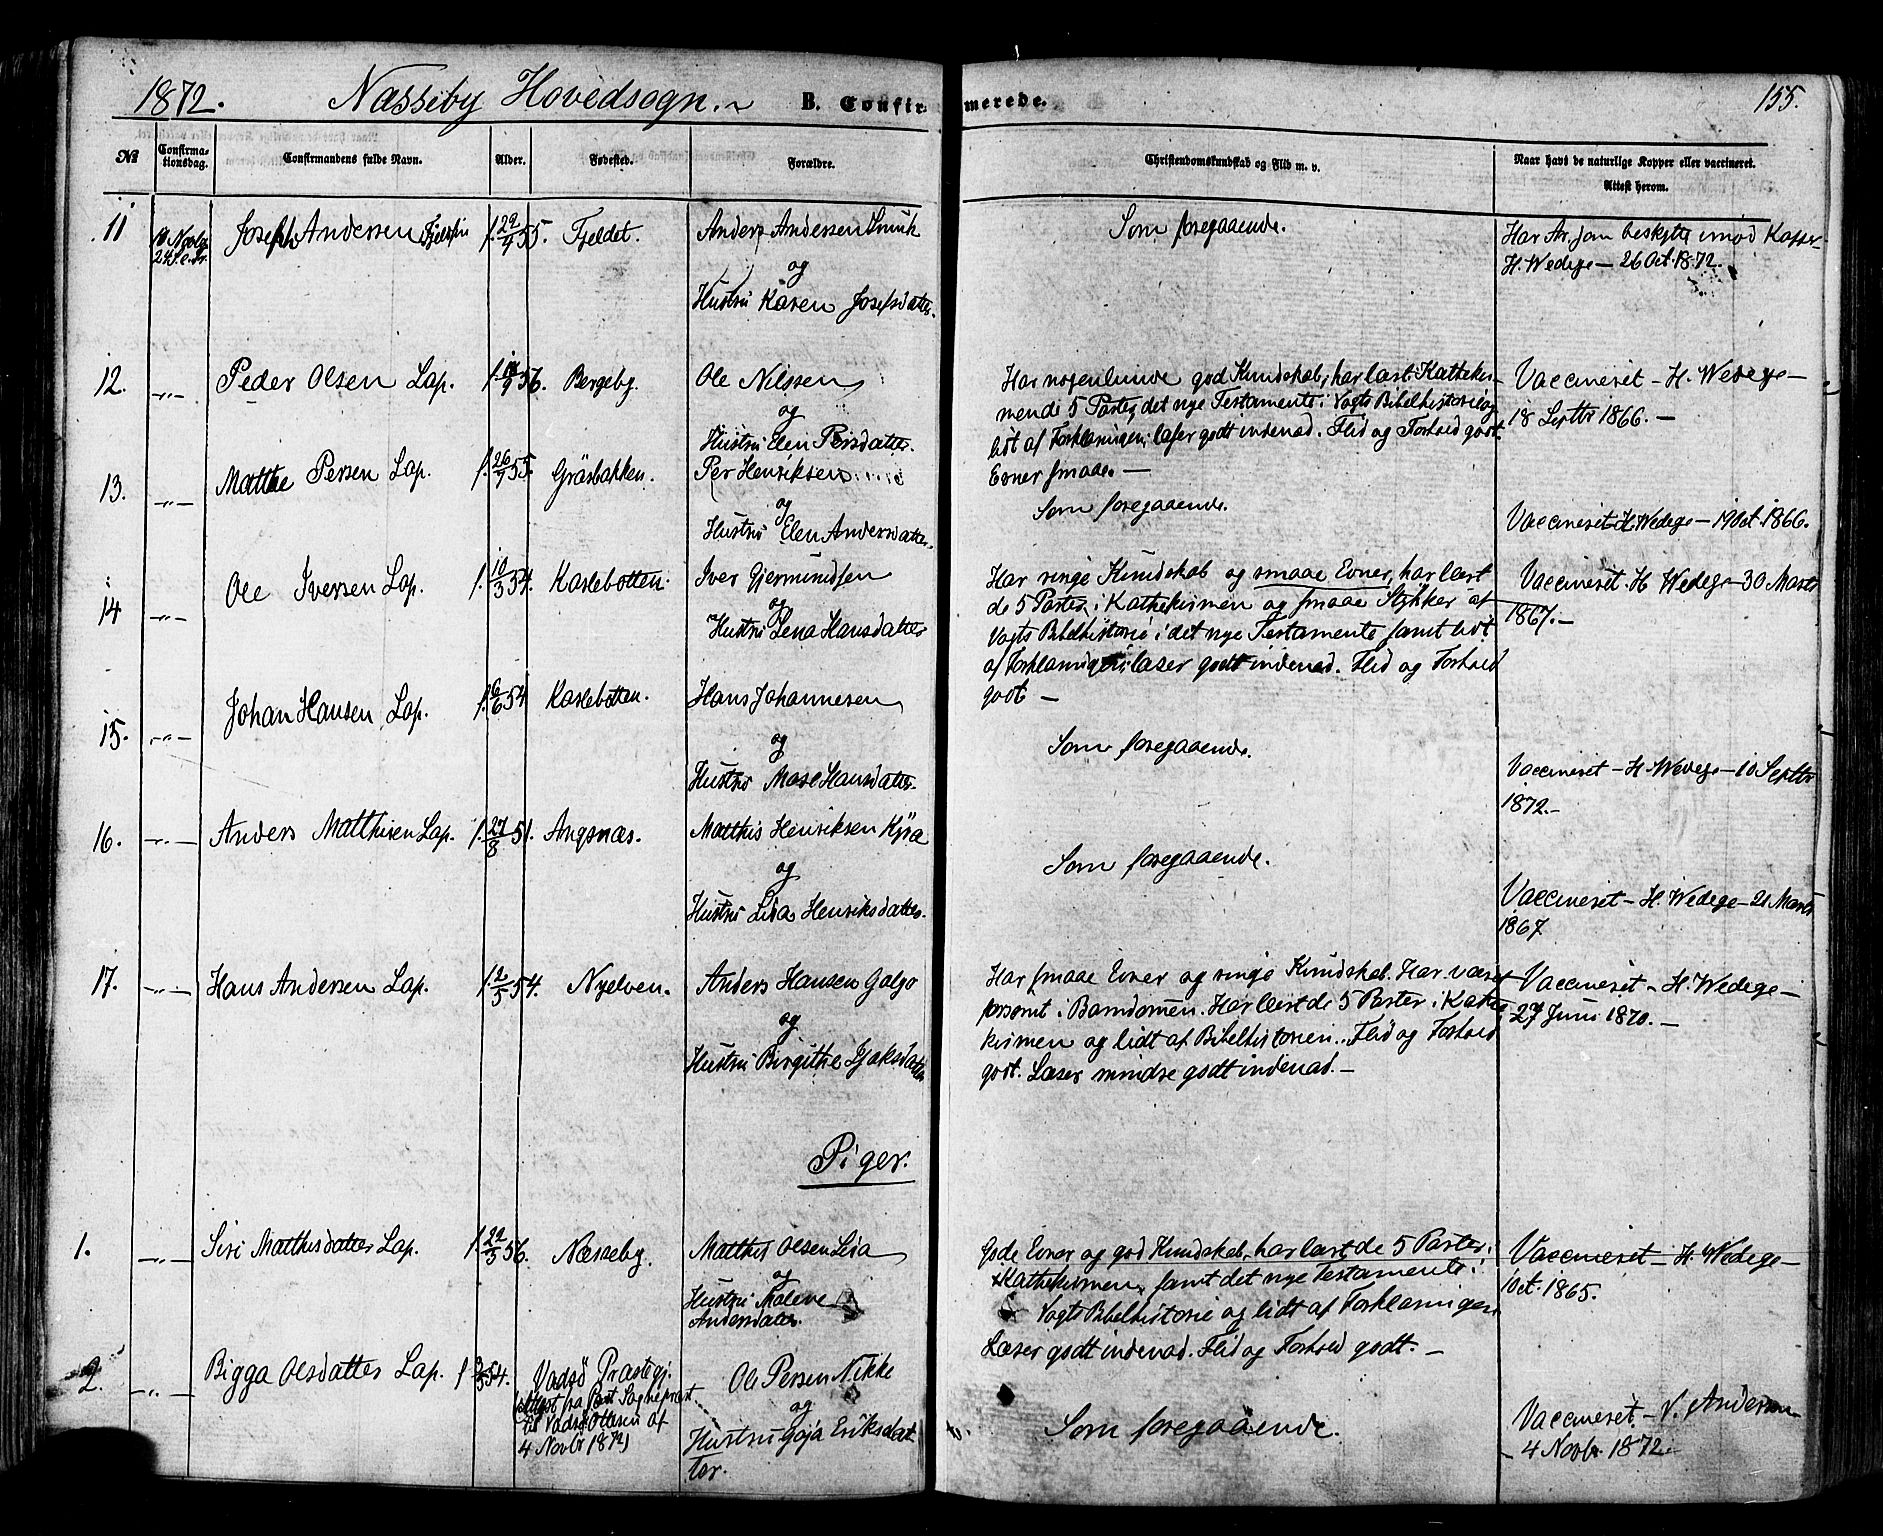 1872. Næsseby Hovedsogn. B. Confirmerede. 155.
No Confirmationsdag. Confirmandens fulde Navn. Alder. Fødested. Forældre. Christendomskundskab og Flid m. v. Naar havt de naturlige Kopper eller vaccineret. Attest herom.
11 Joseph Andersen f. 22/9 55. Fjeldet. Anders Andersen
og
Hustru Karen Josefsdatter.
Som foregaaende.
Har Ar, Jan beskytte imod Kopper
H. Wedege – 26 Oct. 1872.
12. –"– Peder Olsen Lap. 56. Bergeby. Ole Nilssen
og
Hustru Elen Persdatter.
Har nogenlunde god Kundskab, har læst Kathekis-
mende 5 Parter, det nye Testamente, Vogts Bibelhistorie og
lidt af Forklaringen; læser godt indenad. Flid og Forhold godt.
Evner smaae. –
Vaccineret – H. Wedege –
18 Septbr 1866. –
13. –"– Matthe Persen Lap. f. 26/9 55. Gräsbakken. Per Henriksen
og
Hustru Elen Andersdatter.
Som foregaaende.
Vaccineret H. Wedege – 19 Oct. 1866.
14 –"– Ole Iversen Lap. f. 10/3 54. Kaslebotten. Iver Gjermundsen
og
Hustru Lena Hansdatter
Har ringe Kundskab og smaae Evner, har læst
de 5 Parter i Kathekismen og smaae Stykker af
Vogts Bibelhistorie i det nye Testamente samt lidt
af Forklaringen; læser godt indenad. Flid og Forhold
godt –
Vaccineret. H. Wedege – 30 Marts
1867. –
15. –"– Johan Hansen Lap. f. 6/6 54 Kaslebotten. Hans Johannesen
og
Hustru Mase Hansdatter.
Som foregaaende.
Vaccineret – H. Wedege – 10 Septbr
1872. –
16. –"– Anders Matthisen Lap. f. 27/8 51. Angsnæs. Matthis Henriksen
og
Hustru Lisa Henriksdatter.
Som foregaaende.
Vaccineret – H. Wedege – 21 Marts
1867
17. –"– Hans Andersen Lap. f. 2/5 54. Nyelven. Anders Hansen Galgo
og
Hustru Birgithe
Har smaae Evner og ringe Kundskab. Har været
forsømt i Barndomen. Har læst de 5 Parter i Kathe-
kismen og lidt af Bibelhistorien. Flid og Forhold
godt. Læser mindre godt indenad. –
Vaccineret – H. Wedege –
27 Juni 1870. –
Piger.
1. –"– Siri Matthisdatter Lap. f. 22/3 56. Næsseby. Matthis Olsen
og
Hustru
Andersdatter.
Gode Evner og god Kundskab, har læst de 5 Parter i
Kathekismen, samt det nye Testamente i
Vogts Bibelhistorie og lidt af Forklaringen
Læser godt indenad. Flid og Forhold godt. –
Vaccineret – H. Wedege –
1 Oct. 1865.
2. –"– Bigga Olsdatter Lap. 54. Vadsö Præstegj. Ole Persen Nikke
(Attest fra Sognepræst
til Vadsö Ottesen af
4 Novbr 1872)
og
Hustru Goja Eriksdat
ter.
Som foregaaende.
Vaccineret – V. Andersen
– 4 Novbr 1872 –